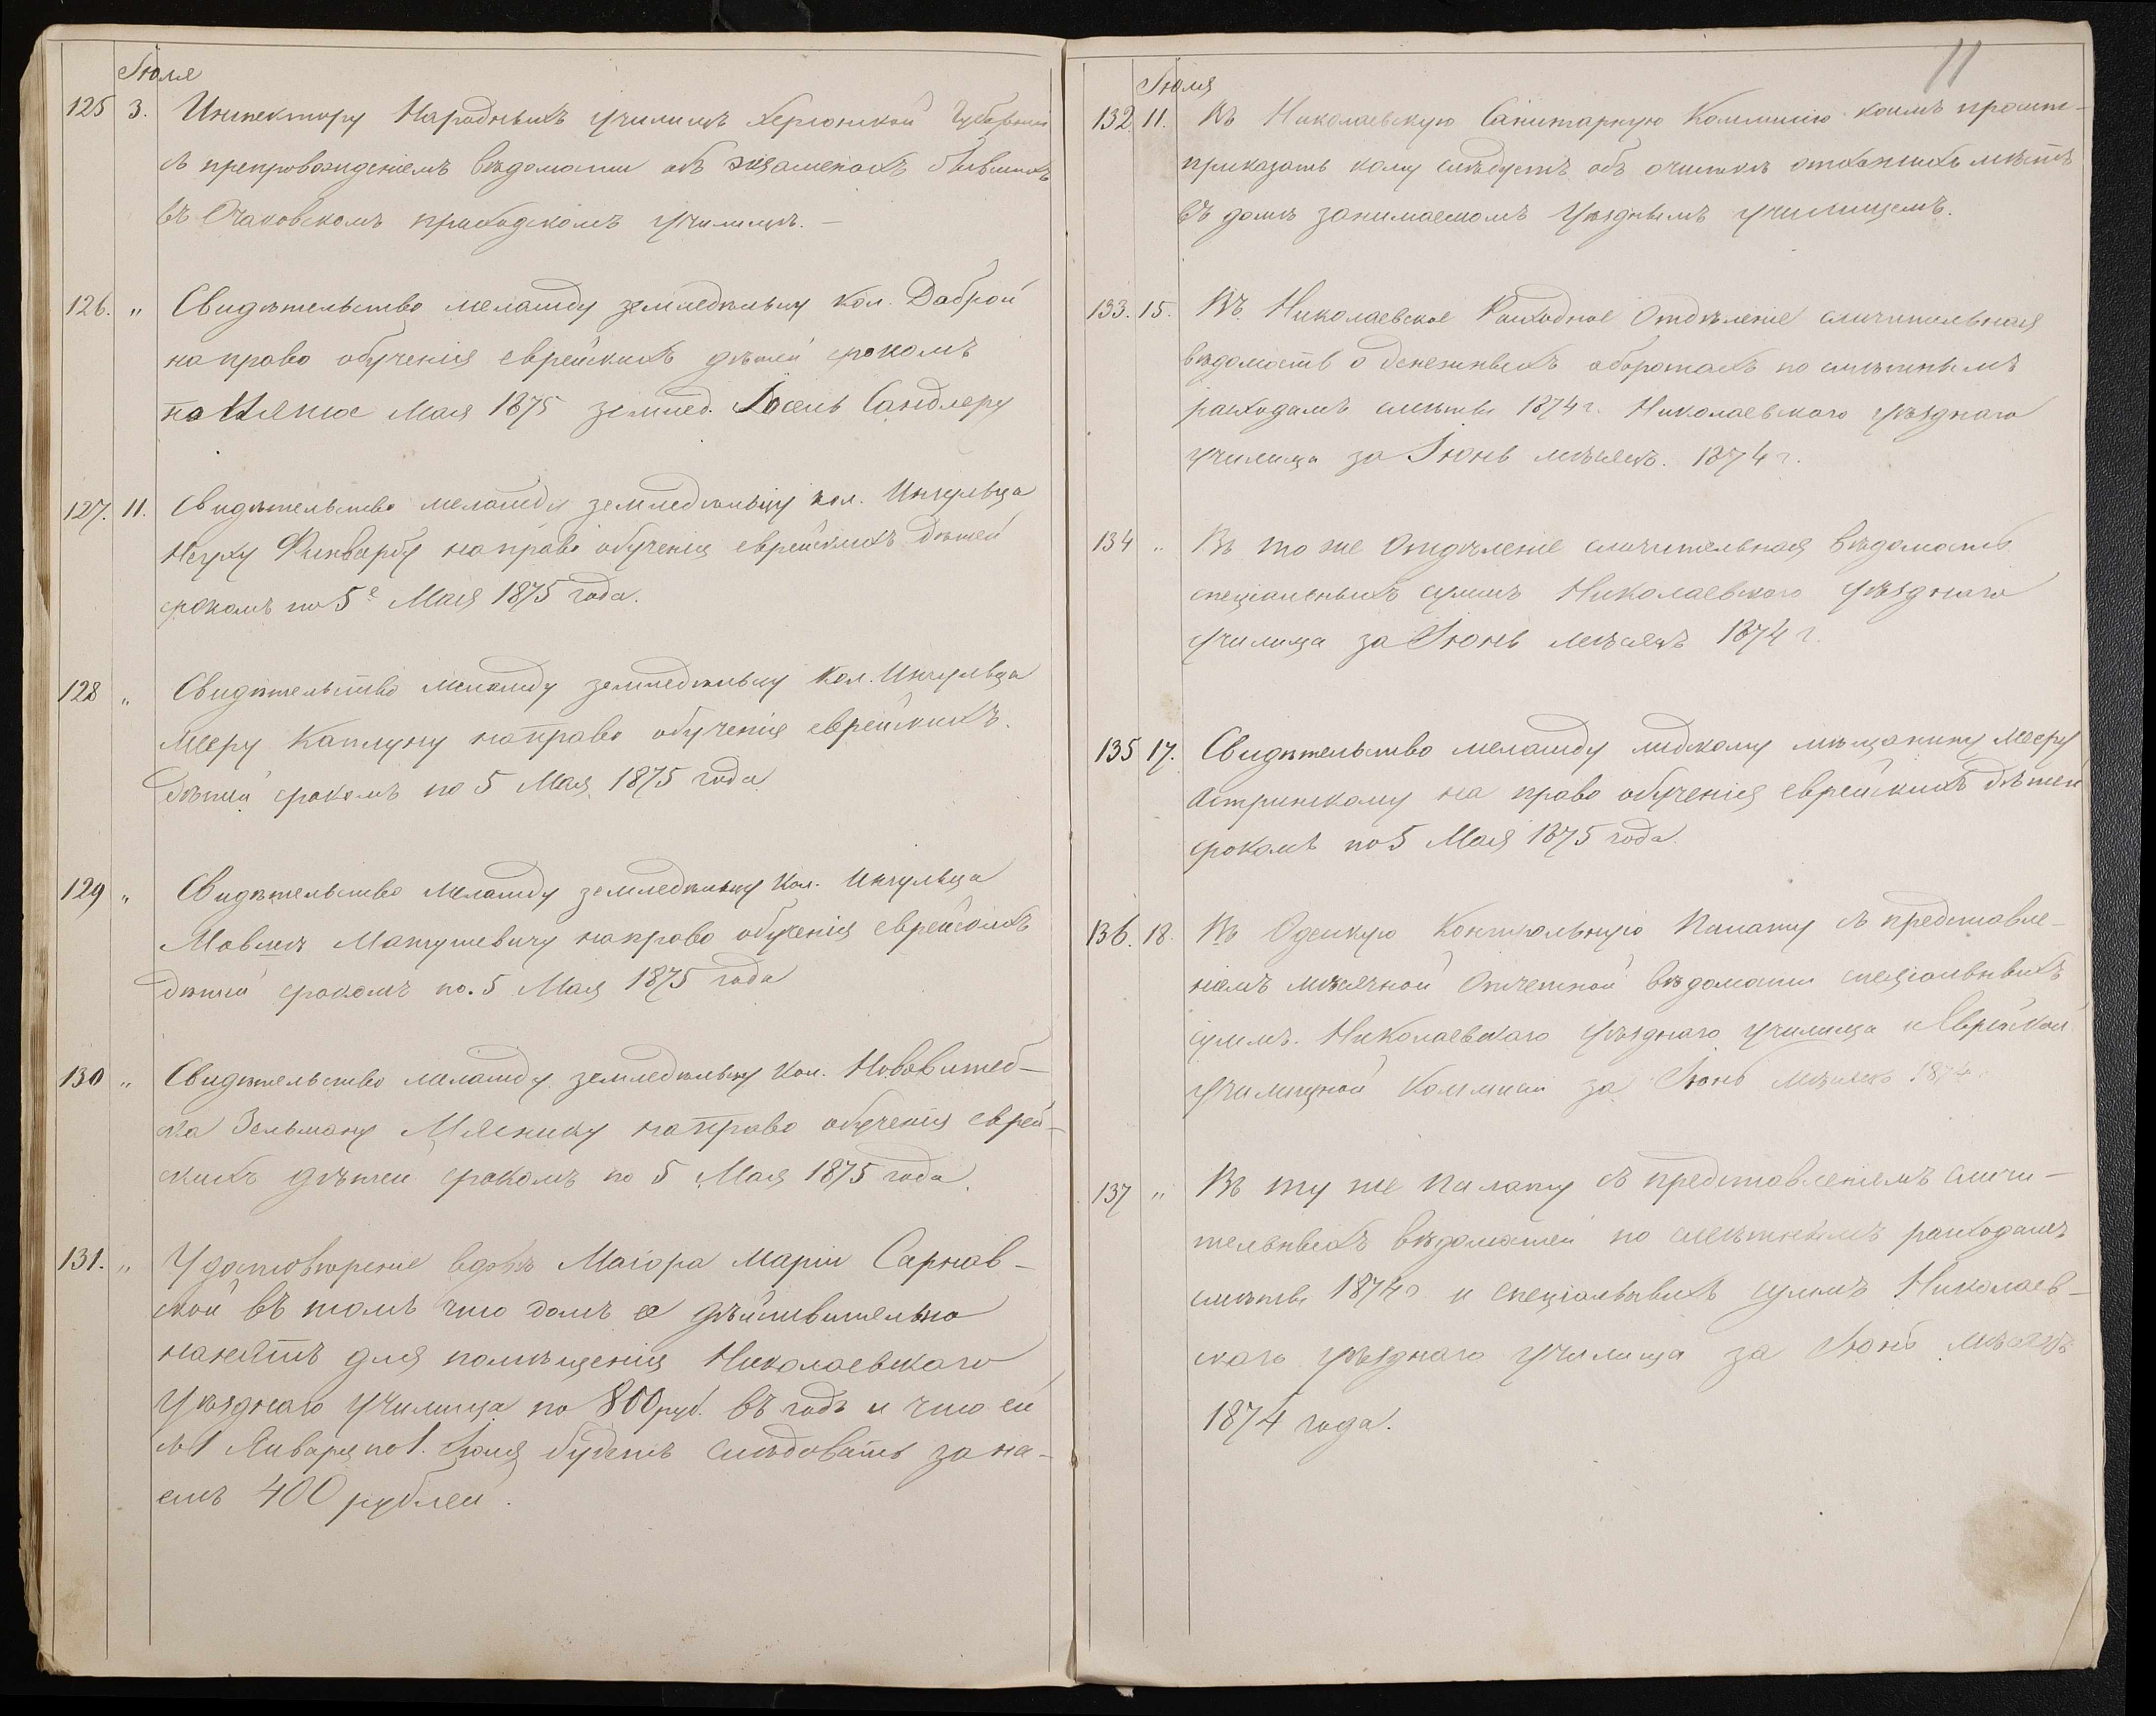 Іюля
125 3. Инспектору Народныхъ училищъ Херсонской Губерніи
съ препровожденіемъ вѣдомости объ экзаменахъ бывшихъ
въ Очаковскомъ приходскомъ училищѣ. —
126. „ Свидѣтельство меламду земледѣльцу кол. Доброй
на право обученія еврейскихъ дѣтей срокомъ
по Мая 1875 землед. Іосель Сандлеру
127. 11. Свидѣтельство меламду земледѣльцу кол. Ингульца
Нехуху Финварбу на право обученія еврейскихъ дѣтей
срокомъ по 5е Мая 1875 года.
128 „ Свидѣтельство меламду земледѣльцу кол. Ингульца
Мееру Каплуну на право обученія еврейскихъ
дѣтей срокомъ по 5 Мая 1875 года
129 „ Свидѣтельство меламду земледѣльцу кол. Ингульца
Мовшѣ Матушевичу на право обученія еврейскихъ
дѣтей срокомъ по. 5 Мая 1875 года
130 „ Свидѣтельство меламду земледѣльцу кол. Нововитеб-
ска Зельману Мяснику на право обученія еврей-
скихъ дѣтей срокомъ по 5 Мая 1875 года.
131. „ Удостовѣреніе вдовѣ Маіора Маріи Сарнав-
ской въ томъ что домъ ее дѣйствительно
нанятъ для помѣщенія Николаевскаго
Уѣзднаго Училища по 800 руб. въ годъ и что ей
съ 1 Января по 1. Іюля будетъ слѣдовать за на-
емъ 400 рублей.
11
Іюля
132. 11. Въ Николаевскую Санитарную Коммисію коимъ просит-
приказать кому слѣдуетъ объ очисткѣ отхожихъ мѣстъ
въ домѣ занимаемомъ Уѣзднымъ училищемъ.
133. 15. Въ Николаевское Расходное Отдѣленіе сличительная
вѣдомость о денежныхъ оборотахъ по смѣтнымъ
расходамъ смѣты 1874 г. Николаевского уѣзднаго
училища за Іюнь мѣсяцъ. 1874 г.
134 „ Въ то же Отдѣленіе сличительная вѣдомость
спеціальныхъ суммъ Николаевского уѣзднаго
училища за Іюнь мѣсяцъ 1874 г.
135 17. Свидѣтельство меламду лидскому мѣщанину Мееру
Астринскому на право обученія еврейскихъ дѣтей
срокомъ по 5 Мая 1875 года.
136. 18. Въ Одескую Контрольную Палату съ представле-
ніемъ мѣсячной Отчетной вѣдомости спеціальныхъ
суммъ Николаевскаго уѣзднаго училища и Еврейской
училищной Коммисіи за Іюнь мѣсяцъ 1874.
137 „ Въ ту же Палату съ представленіемъ сличи-
тельныхъ вѣдомостей по смѣтнымъ расходамъ
смѣты 1874 г и спеціальныхъ суммъ Николаев-
скаго уѣзднаго училища за Іюнь мѣсяцъ
1874 года.